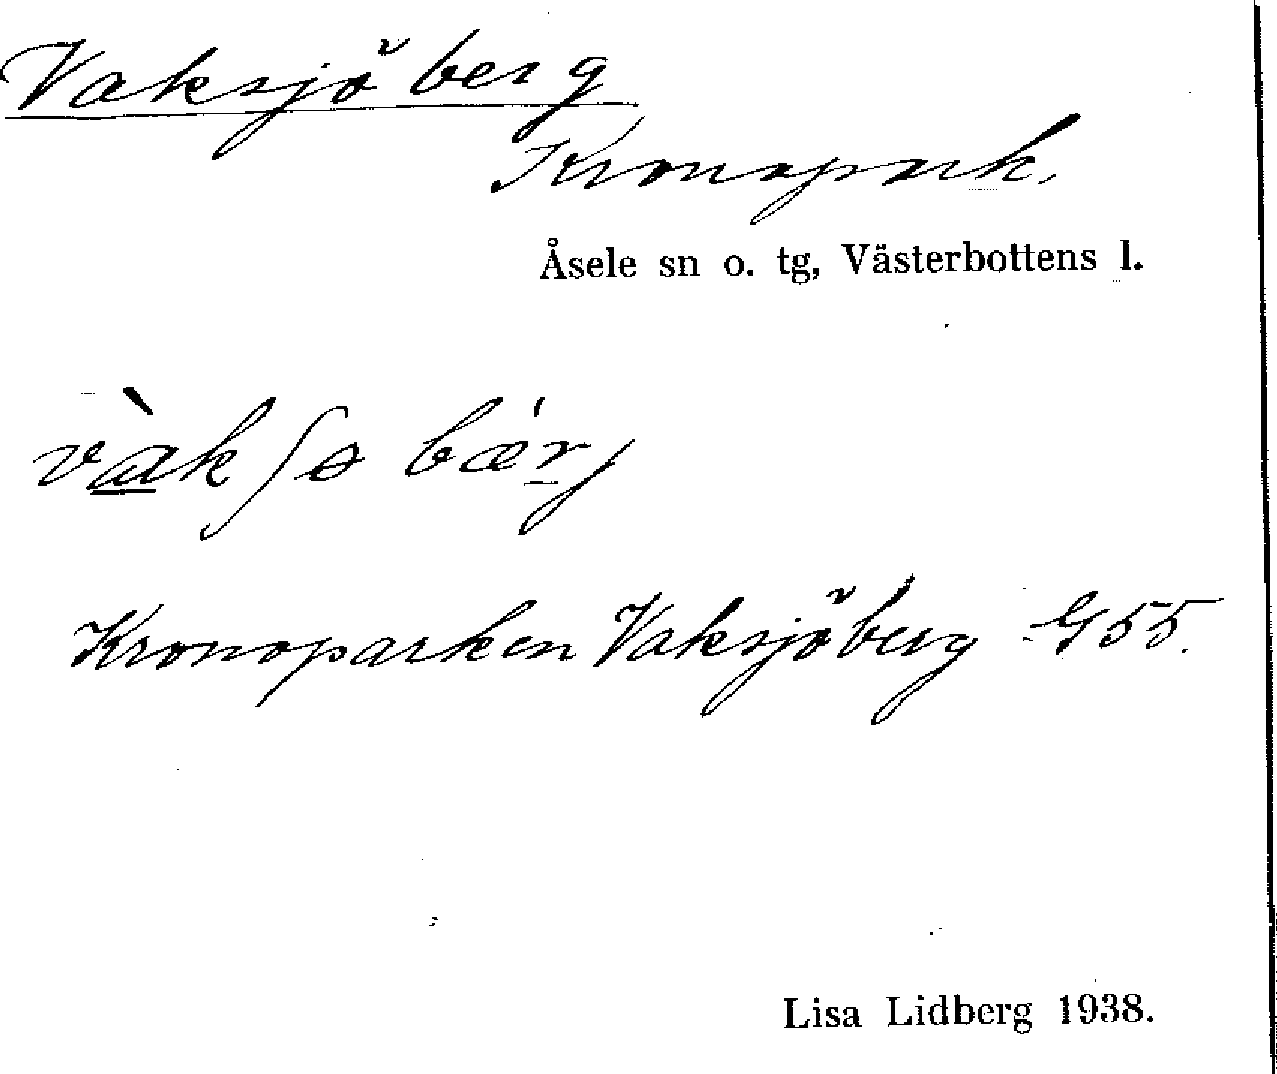 Vaksjöberg
Kronopark.
Åsele sn o. tg, Västerbottens l.
vàkʃɵ bǽrj
Kronoparken Vaksjöberg G 55.
Lisa Lidberg 1938.